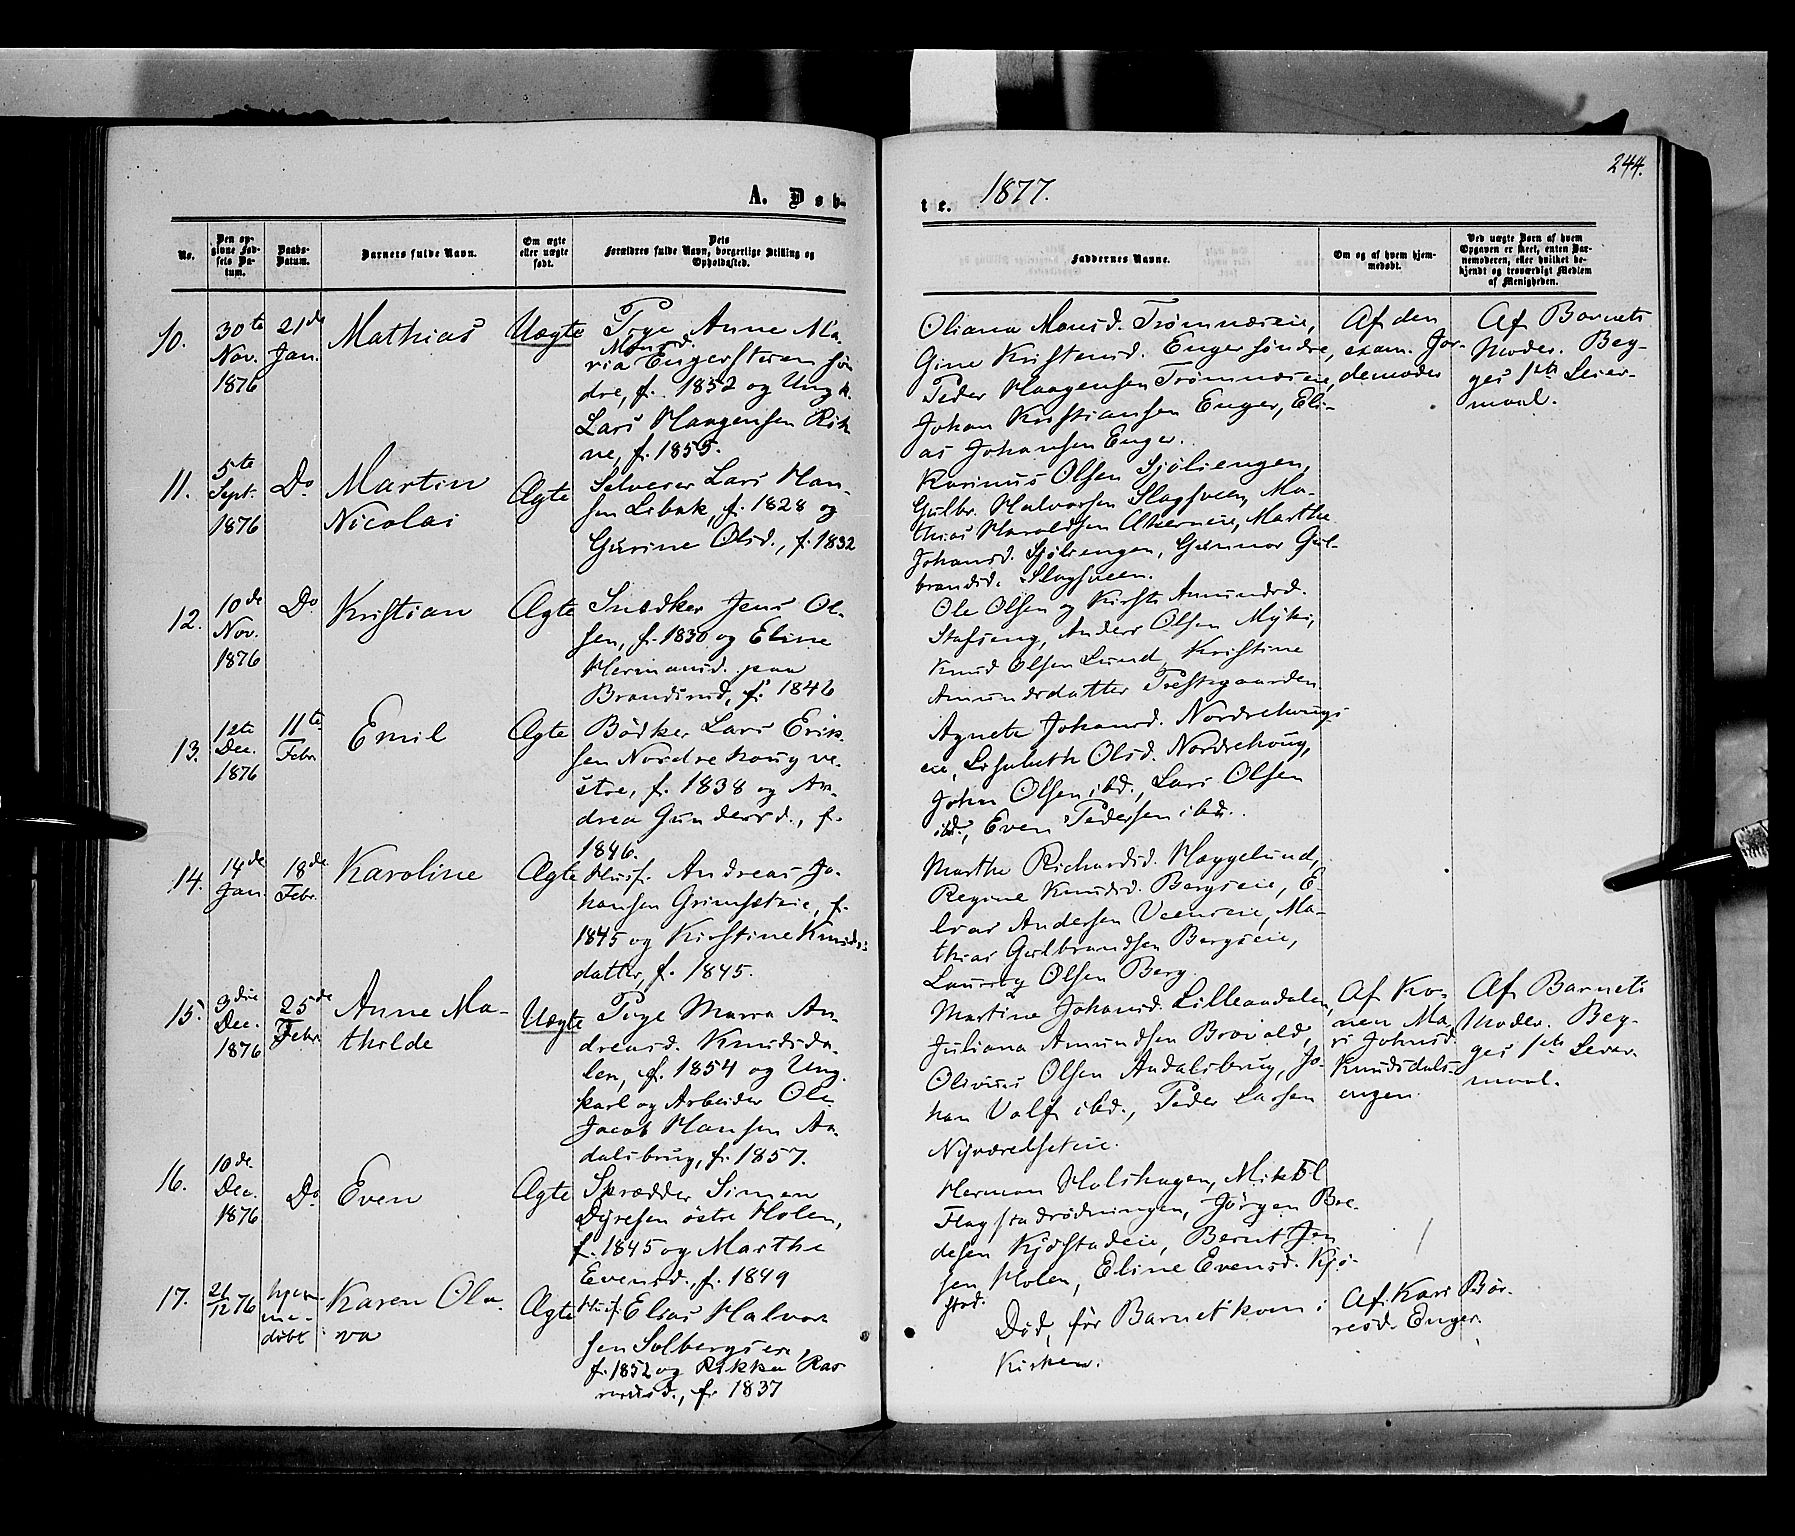 244.
A. Døb-
te. 1877.
No.
Den op-
givne Fød-
sels Da-
tum.
Daabs-
Datum.
Barnets fulde Navn.
Om ægte
eller uægte
født.
Dets
Forældres fulde Navn, borgerlige Stilling og
Opholdssted.
Faddernes Navne.
Om og af hvem hjem-
medøbt.
Ved uægte Børn af hvem
Opgaven er skeet, enten Bar-
nemoderen, eller hvilket be-
kjendt og troværdigt Medlem
af Menigheden.
10.
30te
Nov.
1876
21de
Jan.
Mathias
Uægte
Pige Anne Ma-
Monsd.
ria Engerstuen søn
dre, f. 1852 og Ungk.
Lars Haagensen Rök
ne, f. 1855.
Oliana Monsd. Trømnæseie,
Gine Kristensd. Enger søndre,
Peder Haagensen Trømnæseie,
Johan Kristiansen Enger, Eli-
as Johansen Enger.
Af den
exam. Jor-
demoder
Af Barnets
Moder. Beg-
ges 1ste Leier-
maal.
11.
5te
Sept.
1876
Do
Martin
Nicolai
Ægte
Selveier Lars Han-
sen Libak, f. 1828 og
Gurine Olsd., f. 1832
Karinus Olsen Sjøliengen,
Gulbr. Halvorsen Slagsveen, Ma-
thias Haraldsen Alierneie, Marthe
Johansd. Sjøliengen, Gunnor Gul-
brandsd. Slagsveen.
12.
10de
Nov.
1876
Do
Kristian
Ægte
Snedker Jens Ol-
sen, f. 1830 og Eline
Hermansd. paa
Brandsrud, f. 1846
Ole Olsen og Kirsti Amundsd.
Stafseng, Anders Olsen Myki,
Knud Olsen Lund, Kristine
Amundsdatter Prestegaarden
13.
12te
Dec.
1876
11te
Febr.
Emil
Ægte
Bødker Lars Erik-
sen Nordrehoug ve-
stre, f. 1838 og An-
drea Gundersd., f.
1846.
Agnete Johansd. Nordrehougs-
eie, Lisabeth Olsd. Nordrehoug,
John Olsen ibd., Lars Olsen
ibd., Even Pedersen ibd.
14.
14de
Jan.
18de
Febr.
Karoline
Ægte
Husf. Andreas Jo-
hansen Grimsæteie, f.
1845 og Kirstine Knuds-
datter, f. 1845.
Marthe Richardsd. Haggelund,
Regine Knudsd. Bergseie, E-
lias Andersen Veenseie, Ma-
thias Gulbrandsen Bergseie,
Lauritz Olsen Berg.
15.
3die
Dec.
1876
25de
Febr.
Anne Ma-
thilde
Uægte
Pige Maria An-
dreasd. Knudsda-
len, f. 1854 og Ung-
karl og Arbeider Ole
Jacob Hansen Aa-
dalsbrug, f. 1857.
Martine Johansd. Lilleaadalen,
Juliana Amundsen Brovold,
Olivius Olsen Aadalsbrug, Jo-
han Valf ibd., Peder Larsen
Nyværelseteie.
Af Ko-
nen Ma-
ri Johnsd.
Knudsdals-
engen.
Af Barnets
Moder. Beg-
ges 1ste Leier-
maal.
16.
10de
Dec.
1876
Do
Even
Ægte
Skrædder Simen
Dyresen østre Holen,
f. 1845 og Marthe
Evensd., f. 1849
Herman Holshagen, Mikkel
Flagstadrødningen, Jørgen Bre-
desen Kjøstadeie, Bernt Jen
sen Holen, Eline Evensd. Kjø-
stad.
17.
21/12 76
hjem-
me-
døbt
Karen Ola-
va
Ægte
Husf. Elias Halvor-
sen Solbergseie,
f. 1852 og Rikka Ras-
musd., f. 1837
Død, før Barnet kom i
Kirken.
Af Kari Bør-
resd. Enger.